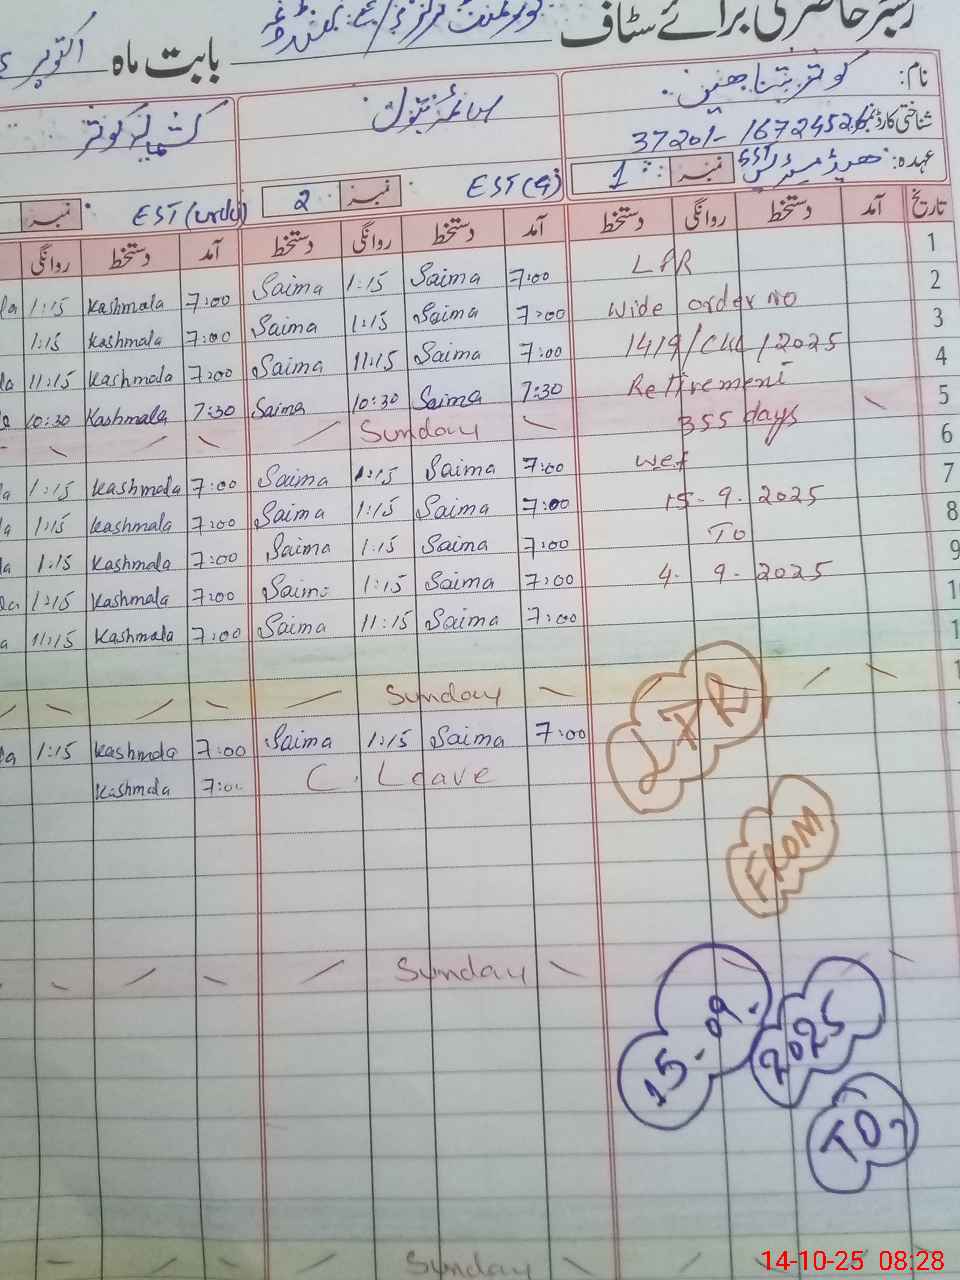 رجسٹر حاضری برائے سٹاف
بابت ماہ اکتوبر
نام: کوثر
شناختی کارڈ نمبر 37201-1672452
عہدہ: ھیڈ مسٹریس SST
نمبر 1
EST(
نمبر 2
EST(urdu)
نمبر
تاریخ آمد دستخط روانگی دستخط آمد دستخط روانگی دستخط آمد دستخط روانگی
1 LPR
7:00 Saima 1:15 Saima 7:00 Kashmala 1:15
2 wide order no
7:00 Saima 1:15 Saima 7:00 Kashmala 1:15
3 1419/ /2025
7:00 Saima 11:15 Saima 7:00 Kashmala 11:15
4 Retirement
7:30 Saima 10:30 Saima 7:30 Kashmala 10:30
5 355 days
Sunday
6 wef
7:00 Saima 1:15 Saima 7:00 Kashmala 1:15
7 15-9-2025
7:00 Saima 1:15 Saima 7:00 Kashmala 1:15
8 To
7:00 Saima 1:15 Saima 7:00 Kashmala 1:15
9 4-9-2025
7:00 Saima 1:15 Saima 7:00 Kashmala 1:15
7:00 Saima 11:15 Saima 7:00 Kashmala 11:15
Sunday
7:00 Saima 1:15 Saima 7:00 Kashmala 1:15
C. Leave 7:00 Kashmala
LPR
FROM
Sunday
15-09-
2025
TO
Sunday
14-10-25 08:28